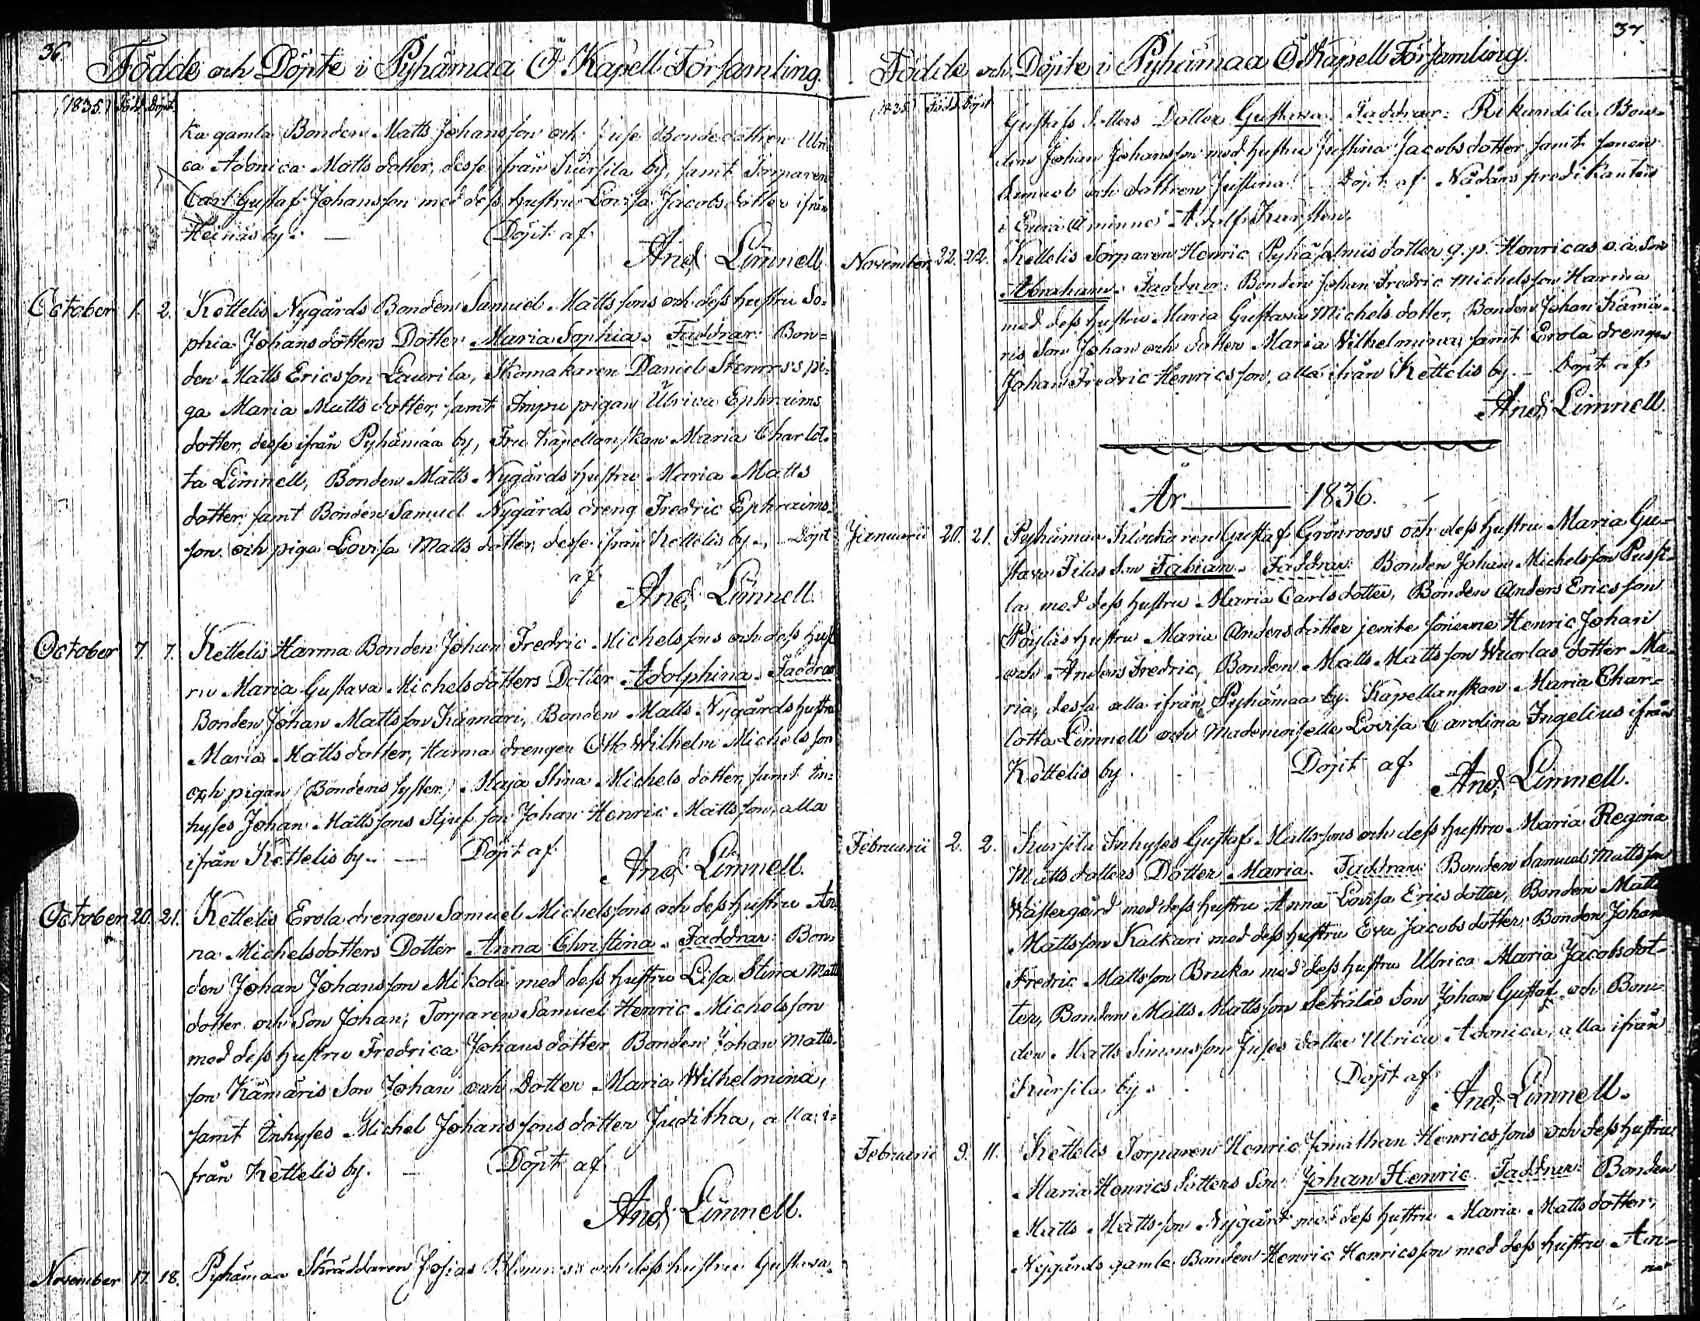 36.
Födde och Döpte i Pyhämaa Ö Kapell Församling.
1835. Född. Döpt.
ka gamla Bonden Matts Johansson och Juse Bondedottren Ulri
ca Adonica Matts dotter, desse ifrån Kursila by, samt Torparen
Carl Gustaf Johansson med dess hustru Lovisa Jacobs dotter ifrån
Heinäs by. — Döpt af
And. Limnell.
October 1. 2. Kettelis Nygårds Bonden Samuel Mattssons och dess hustru So-
phia Johansdotters Dotter Maria Sophia. Faddrar: Bon-
den Matts Ericsson Laurila, Skomakaren Daniel pi-
ga Maria Matts dotter, samt Impu pigan Ulrica Ephraims
dotter, desse ifrån Pyhämaa by, Fru Kapellanskan Maria Charlot-
ta Limnell, Bonden Matts Nygårds hustru Maria Matts
dotter samt Bonden Samuel Nygårds dreng Fredric Ephraims-
son och piga Lovisa Matts dotter, desse ifrån Kettelis by. Döpt
af And. Limnell.
October 7. 7. Kettelis Harma Bonden Johan Fredric Michelssons och dess hust
ru Maria Gustava Michelsdotters Dotter Adolphina. Faddrar
Bonden Johan Mattsson Kämäri, Bonden Matts Nygårds hustru
Maria Matts dotter, Harma drengen Otto Wilhelm Michelsson
och pigan (Bondens syster) Maja Stina Michels dotter, samt In-
hyses Johan Mattssons Stjuf son Johan Henric Mattsson, alla
ifrån Kettelis by. — Döpt af
And. Limnell.
October 20. 21. Kettelis Erola drengen Samuel Michelssons och dess hustru An
na Michelsdotters Dotter Anna Christina. Faddrar: Bon-
den Johan Johansson Mikola med dess hustru Lisa Stina Matts
dotter och Son Johan, Torparen Samuel Henric Michelsson
med dess hustru Fredrica Johans dotter Bonden Johan Matts-
son Kämäris Son Johan och Dotter Maria Wilhelmina,
samt Inhyses Michel Johanssons dotter Juditha, alla i-
från Kettelis by. — Döpt af
And. Limnell.
November 17. 18. Pyhämaa Skräddaren Josias och dess hustru Gustava
37.
Födde och Döpte i Pyhämaa Ö Kapell Församling.
1835. Född. Döpt
dotters Dotter Gustava. Faddrar: Rekundila Bon-
den Johan Johansson med hustru Justina Jacobsdotter samt sonen
Samuel och dottren Justina. Döpt af Nådårs predikanten
i Eura Å minne Adolf
November 22. 22. Kettelis Torparen Henric dotter q. p. Henricas o. ä. Son
Abraham. Faddrar: Bonden Johan Fredric Michelsson Harma
med dess hustru Maria Gustava Michels dotter, Bonden Johan Kämä-
ris Son Johan och dotter Maria Wilhelmina, samt Erola drengen
Johan Fredric Henricsson, alla ifrån Kettelis by. — Döpt af
And. Limnell.
År 1836.
Januarii 20. 21. Pyhämaa Klockaren Gustaf Grönrooss och dess hustru Maria Gu-
stava Filas Son Fabian. Faddrar: Bonden Johan Michelsson
la med dess hustru Maria Carls dotter, Bonden Anders Ericsson
hustru Maria Anders dotter jemte sönerne Henric Johan
och Anders Fredric, Bonden Matts Mattsson Wuorlas dotter Ma-
ria, dessa alla ifrån Pyhämaa by. Kapellanskan Maria Char-
lotta Limnell och Mademoiselle Lovisa Carolina Ingelius ifrån
Kettelis by. Döpt af
And. Limnell.
Februarii 2. 2. Kursila Inhyses Gustaf Mattssons och dess hustru Maria Regina
Matts dotters Dotter Maria. Faddrar: Bonden Samuel Mattsson
Wästergård med dess hustru Anna Lovisa Erics dotter, Bonden Matts
Mattsson Kalkari med dess hustru Eva Jacobs dotter, Bonden Johan
Fredric Mattsson Bruka med dess hustru Ulrica Maria Jacobsdot-
ter, Bonden Matts Mattsson Seträläs Son Johan Gustaf och Bon-
den Matts Simonsson Juses dotter Ulrica Adonica, alla ifrån
Kursila by. Döpt af
And. Limnell.
Februarii 9. 11. Kettelis Torparen Henric Jonathan Henricssons och dess hustru
Maria Henrics dotters Son Johan Henric. Faddrar: Bonden
Matts Mattsson Nygård med dess hustru Maria Matts dotter,
Nygårds gamle Bonden Henric Henricsson med dess hustru An-
na